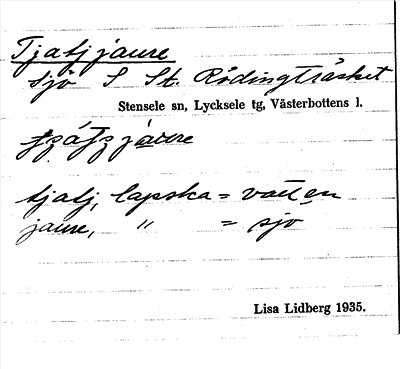 Tjatjjaure
sjö S St. Rödingträsket
Stensele sn, Lycksele tg, Västerbottens l.
tjatj, lapska = vatten
jaure, " = sjö
Lisa Lidberg 1935.